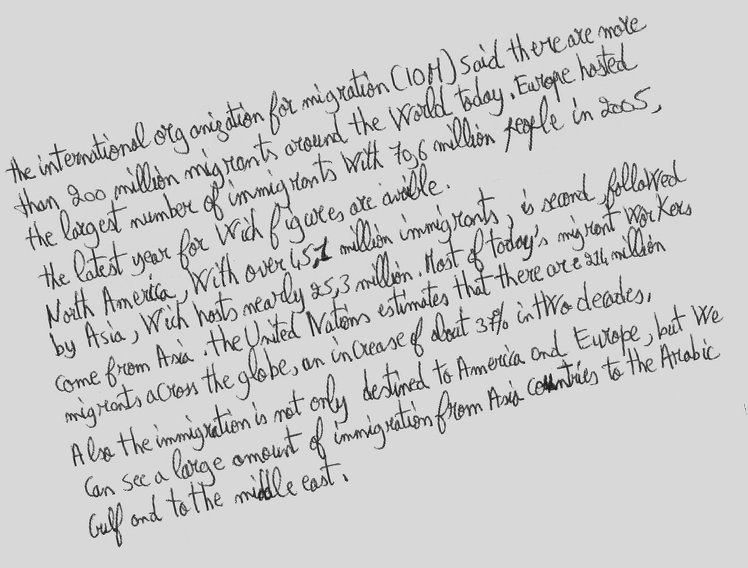 the international organization for migration (IOM) said there are more
than 200 million migrants around the World today. Europe hosted
the largest number of immigrants With 70,6 million people in 2005,
the latest year for Wich figures are availle.
North America, With over 45,1 million immigrants, is second followed
by Asia, Wich hosts nearly 25,3 million. Most of today's migrant Workers
come from Asia. the United Nations estimates that there are 214 million
migrants across the globe, an increase of about 37% in tWo decades.
Also the immigration is not only destined to America and Europe, but We
Can see a large amount of immigration from Asia countries to the Arabic
Gulf and to the middle east.